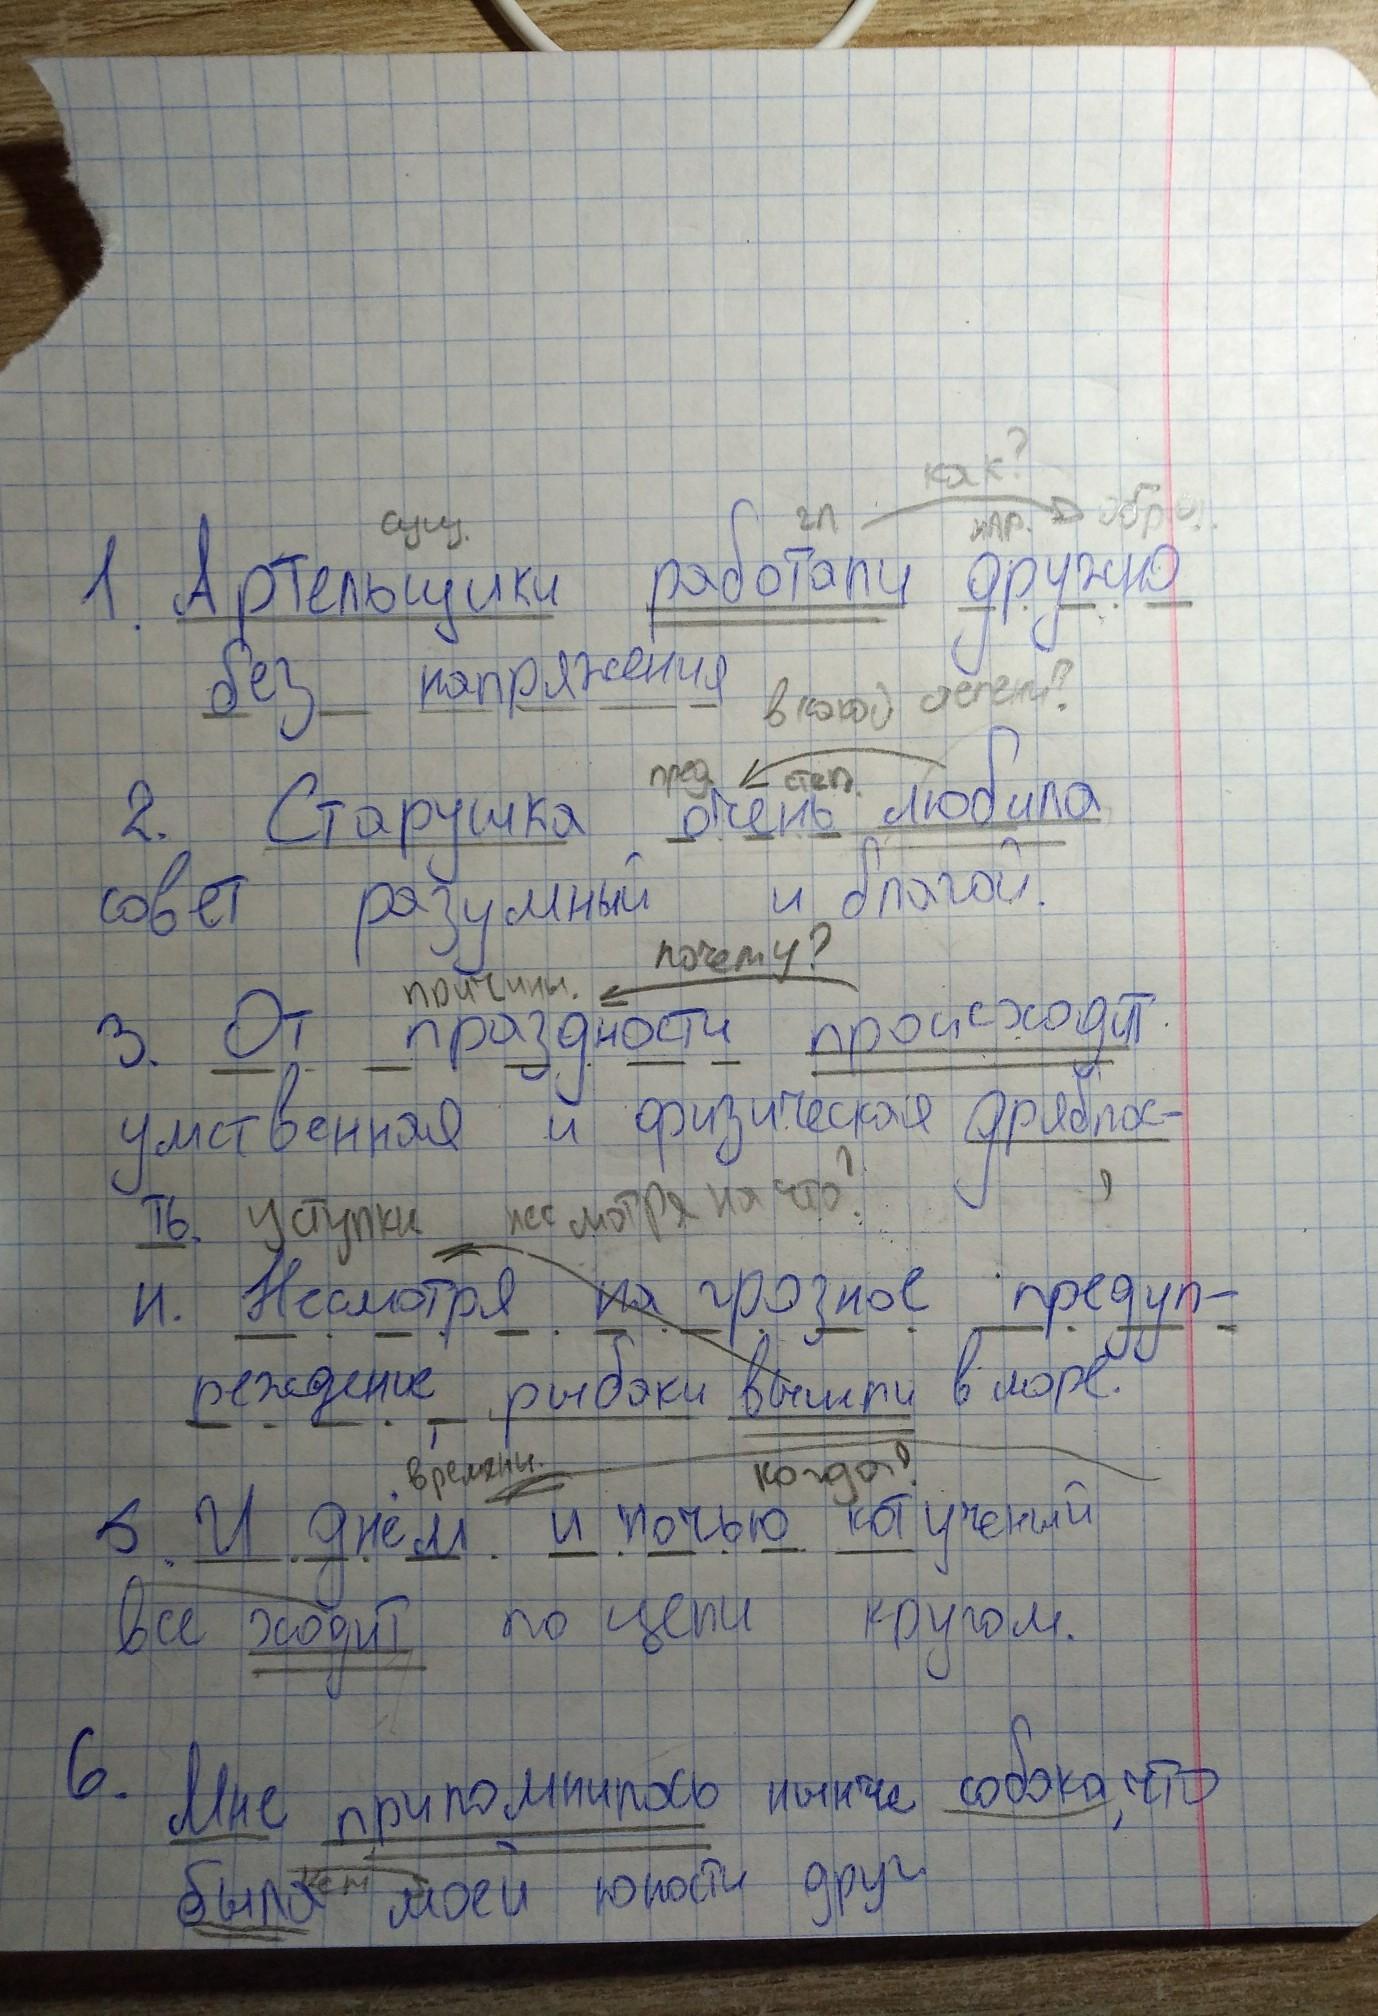 как?
сущ. гл. нар. обр.д.
1. Артельщики работали дружно
без напряжения
в какой степени?
пред. степ.
2. Старушка очень любила
совет разумный и благой.
почему?
причины.
3. От праздности происходит
умственная и физическая дряблос-
ть.
уступки несмотря на что?
4. Несмотря на грозное предуп-
реждение, рыбаки вышли в море.
времени. когда?
5. И днём и ночью кот ученый
все ходит по цепи кругом.
6. Мне припомнилась нынче собака, что
кем
была моей юности друг